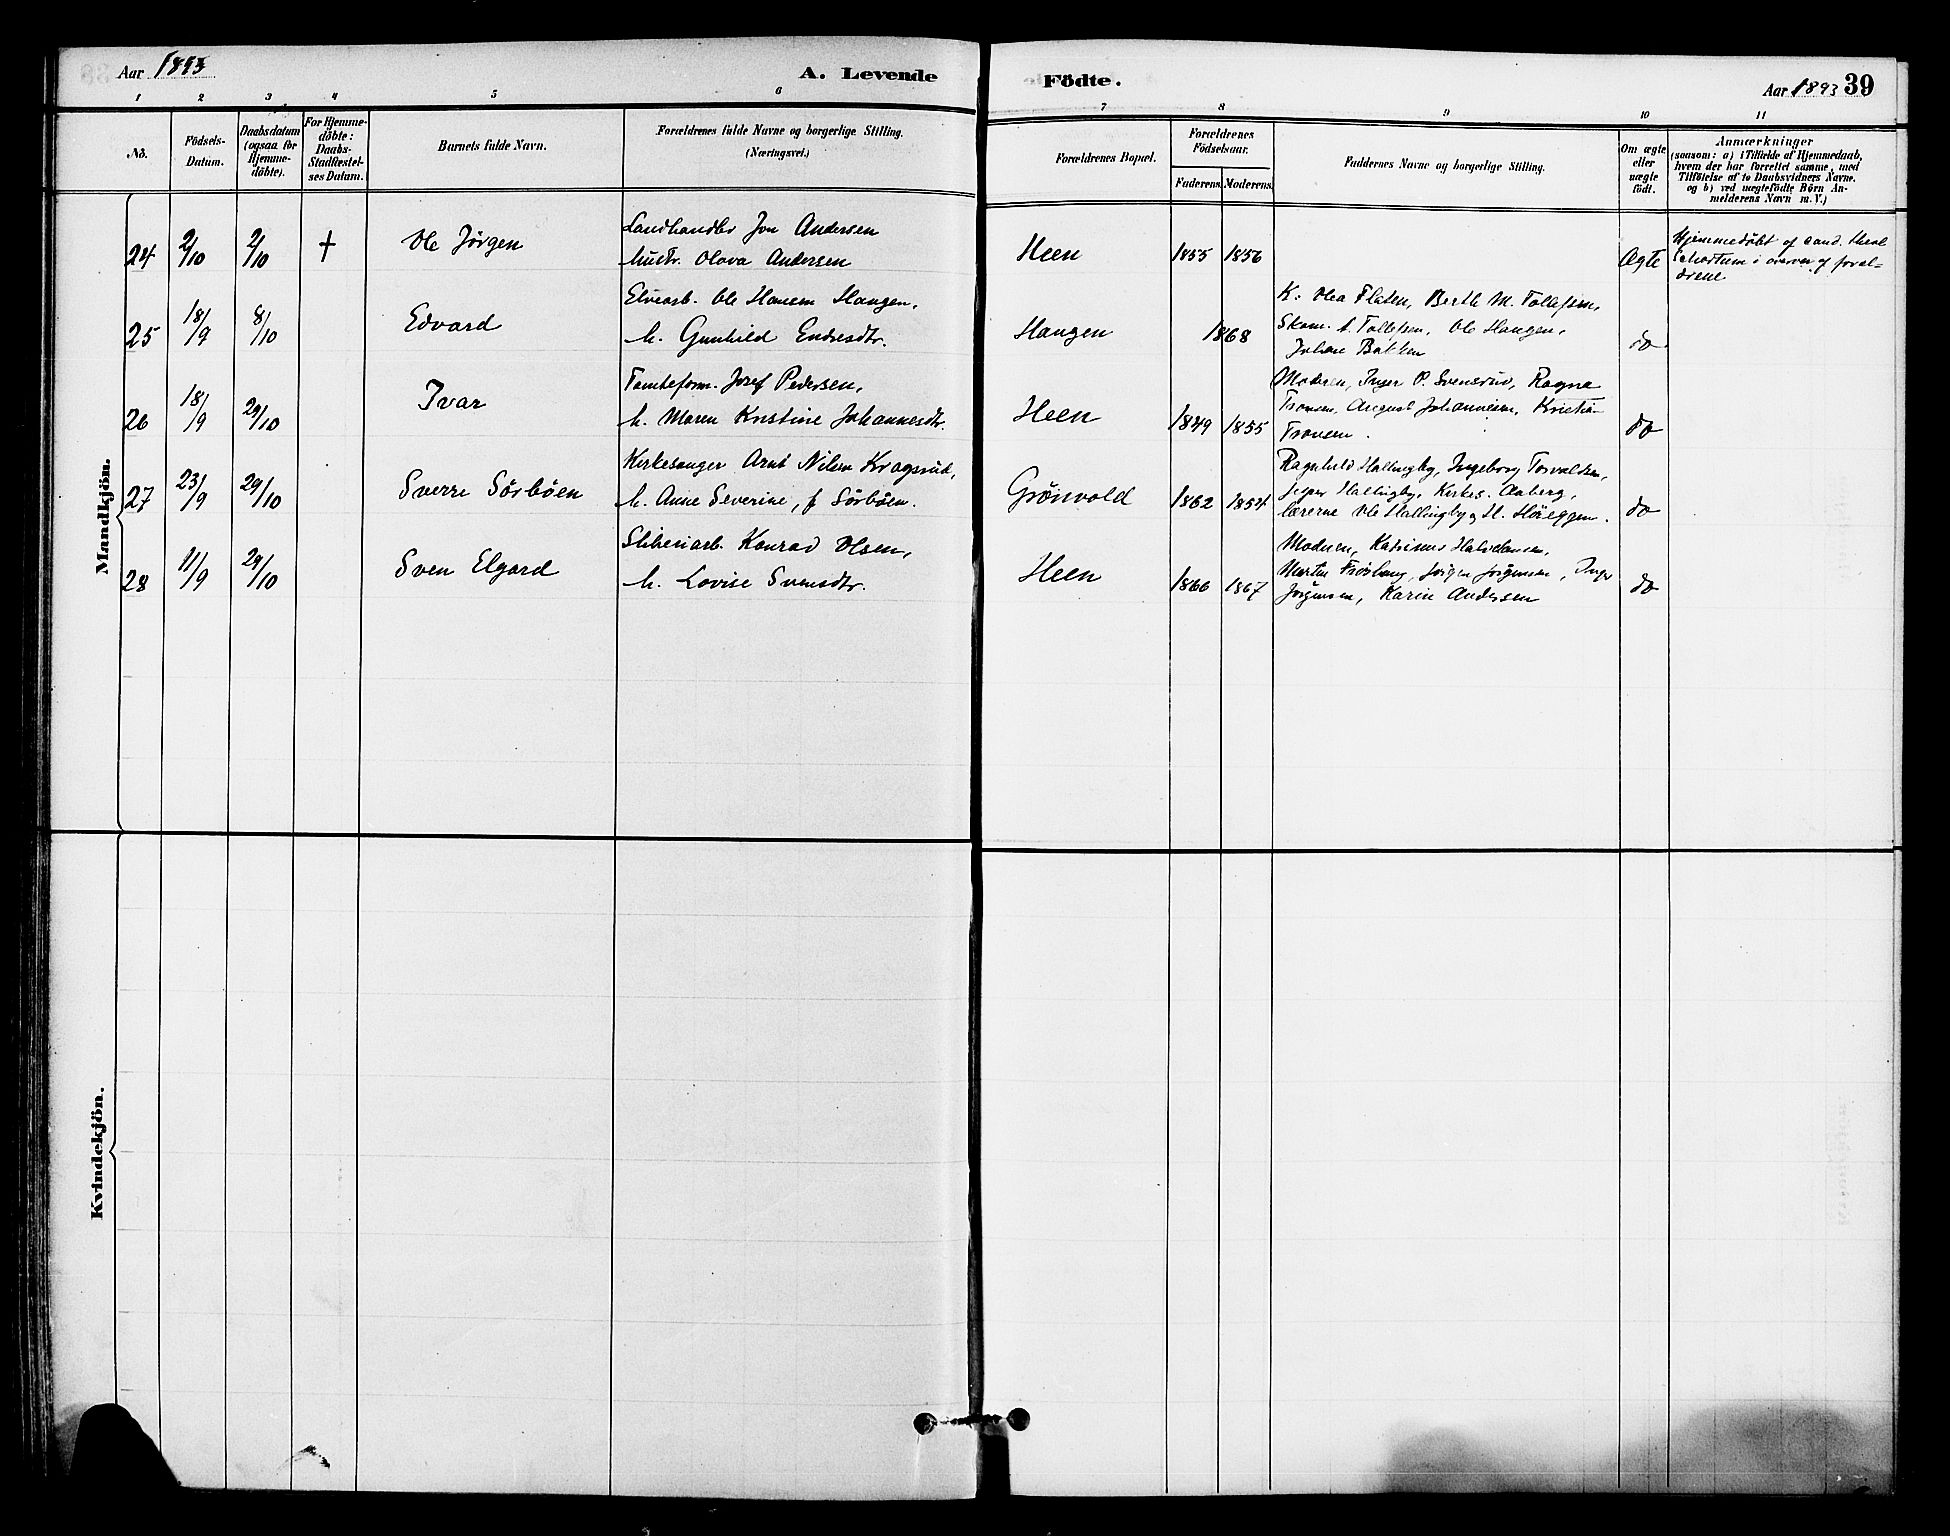 Aar 1893
A. Levende
Födte.
Aar 1893 39
1 2 3 4 5 6 7 8 9 10 11
No.
Födsels-
Datum.
Daabsdatum
(ogsaa for
Hjemme-
döbte).
For Hjemme-
döbte:
Daabs-
Stadfæstel-
ses Datum.
Barnets fulde Navn.
Forældrenes fulde Navne og borgerlige Stilling.
(Næringsvei.)
Forældrenes Bopæl.
Forældrenes
Födselsaar.
Faderens. Moderens.
Faddernes Navne og borgerlige Stilling.
Om ægte
eller
uægte
født.
Anmærkninger
(saasom: a) i Tilfælde af Hjemmedaab,
hvem der har forrettet samme, med
Tilföielse af to Daabsvidners Navne.
og b) ved uægtefödte Börn An-
melderens Navn m. V.)
Mandkjön.
24 2/10 2/10 + Ole Jörgen
Landhandler Jon Andersen
hustr. Olava Andersen
Heen 1855 1856 Ægte
Hjemmedöbt af cand. theol
i overvær af foræl-
drene
25 18/9 8/10 Edvard
Elvearb. Ole Hansen Haugen,
h. Gunhild Endresdtr.
Haugen 1868
K: Olea Flaten, Berthe M. Tollefsen,
Skom. A. Tollefsen, Ole Haugen,
Johan Bakken
do
26 18/9 29/10 Ivar
Tomteform. Josef Pedersen,
h. Maren Kristine Johannesdtr.
Heen 1849 1855
Moderen, Inger P. Svensrud, Ragna
Tronsen, August Johannesen, Kristian
Tronsen.
do
27 23/9 29/10 Sverre Sörböen
Kirkesanger Arnt Nilsen Kragsrud,
h. Anne Severine, f Sörböen.
Grönvold 1862 1854
Ragnhild Hallingby, Ingeborg Torvaldsen,
Hallingby, Kirkes. Aaberg,
lærerne Ole Hallingby og H. Höieggen.
do
28 11/9 29/10 Sven Elgard
Sliberiarb. Konrad Olsen,
h. Lovise Svensdtr.
Heen 1866 1867
Moderen, Halvorsen,
Martin Jörgen Jörgensen, Inger
Jörgensen, Karin Andersen
do
Kvindekjön.